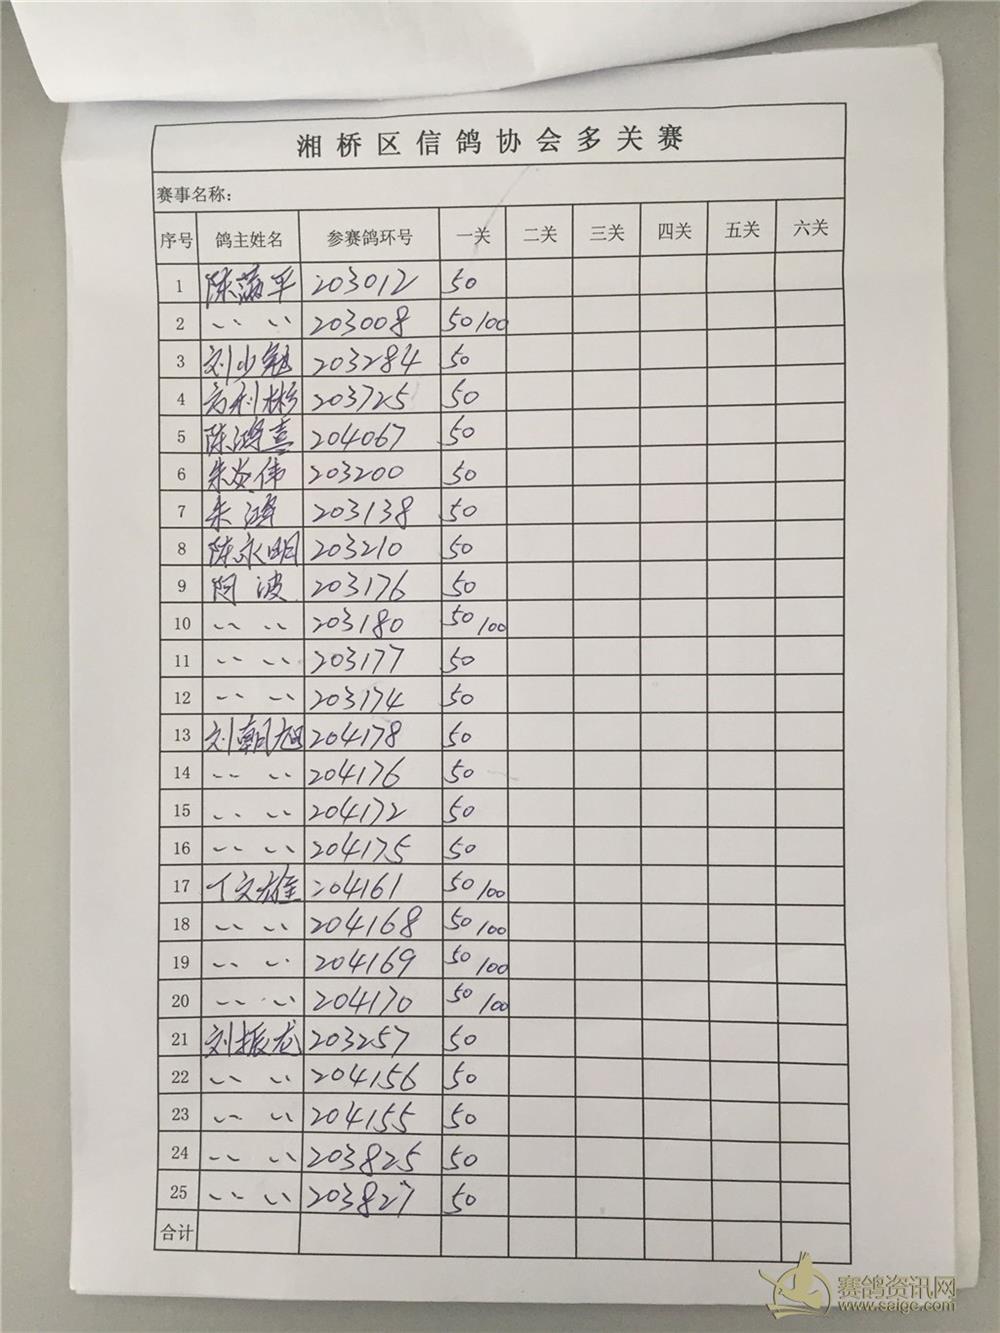 湘桥区信鸽协会多关赛
赛事名称:
序号 鸽主姓名 参赛鸽环号 一关 二关 三关 四关 五关 六关
1 陈 平 203012 50
2 〃 〃 203008 50/100
3 刘少 203284 50
4 方利彬 203725 50
5 陈鸿喜 204067 50
6 朱炎伟 203200 50
7 朱鸿 203138 50
8 陈永明 203210 50
9 波 203176 50
10 〃 〃 203180 50/100
11 〃 〃 203177 50
12 〃 〃 203174 50
13 刘朝旭 204178 50
14 〃 〃 204176 50
15 〃 〃 204172 50
16 〃 〃 204175 50
17 丁文雄 204161 50/100
18 〃 〃 204168 50/100
19 〃 〃 204169 50/100
20 〃 〃 204170 50/100
21 刘振龙 203257 50
22 〃 〃 204156 50
23 〃 〃 204155 50
24 〃 〃 203825 50
25 〃 〃 203827 50
合计
赛鸽资讯网
www.saige.com